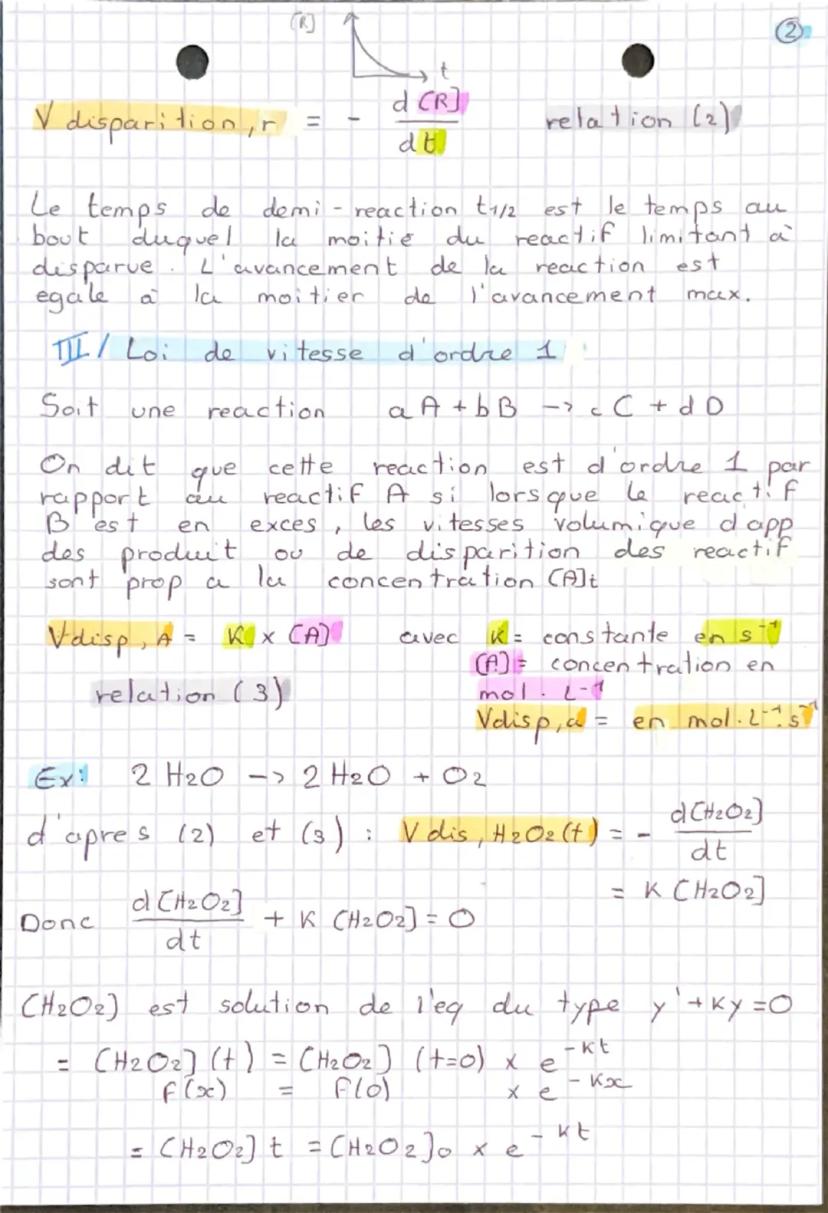 [R]
②
t
V disparition, r = - d[R]/dt relation (2)
Le temps de demi-reaction t1/2 est le temps au
bout duquel la moitié du reactif limitant à
disparue. L'avancement de la reaction est
egale à la moitier de l'avancement max.
III/ Loi de vitesse d'ordre 1
Soit une reaction aA + bB -> cC + dD
On dit que cette reaction est d'ordre 1 par
rapport au reactif A si lorsque le reactif
B est en exces, les vitesses volumique d'app
des produit ou de disparition des reactif
sont prop a la concentration [A]t
Vdisp, A = K x [A] avec K = constante en s⁻¹
[A] = concentration en
relation (3) mol. L⁻¹
Vdisp, a = en mol.L⁻¹.s⁻¹
Ex: 2 H2O -> 2 H2O + O2
d'apres (2) et (3) : V dis, H2O2(t) = - d[H2O2]/dt
= K [H2O2]
Donc d[H2O2]/dt + K [H2O2] = 0
[H2O2] est solution de l'eq du type y'+Ky=0
= [H2O2](t) = [H2O2] (t=0) x e^-Kt
f(x) = f(0) x e^-Kx
= [H2O2]t = [H2O2]0 x e^-Kt